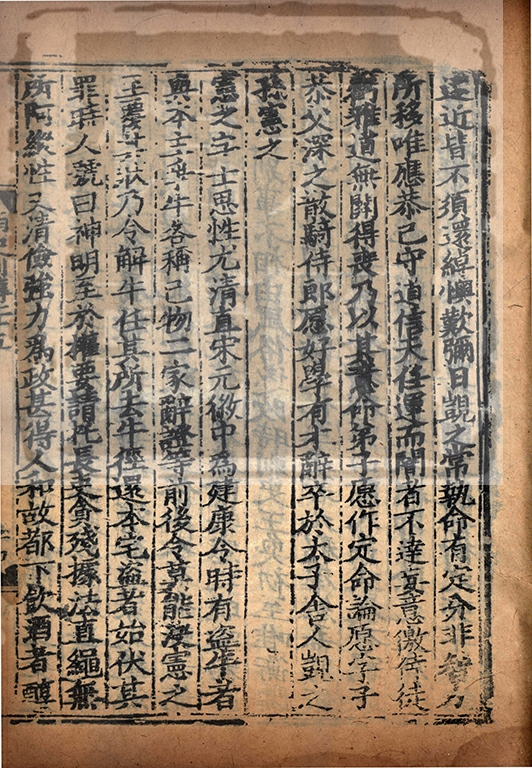 遠近皆不須還綽懊歎彌日覬之常執命有定分非智力
所移唯應恭己守道信天任運而闇者不達妄意僥倖徒
虧雅道無關得喪乃以其意命弟子愿作定命論愿字子
恭父深之散騎侍郎愿好學有才辭卒於太子舍人覬之
孫憲之
憲之字士思性尤清直宋元徽中為建康令時有盜牛者
與本主爭牛各稱己物二家辭證等前後令莫能決憲之
至覆其狀乃令解牛任其所去牛徑還本宅盜者始伏其
罪時人號曰神明至於權要請托長吏貪殘據法直繩無
所阿縱性又清儉強力為政甚得人和故都下飲酒者醇